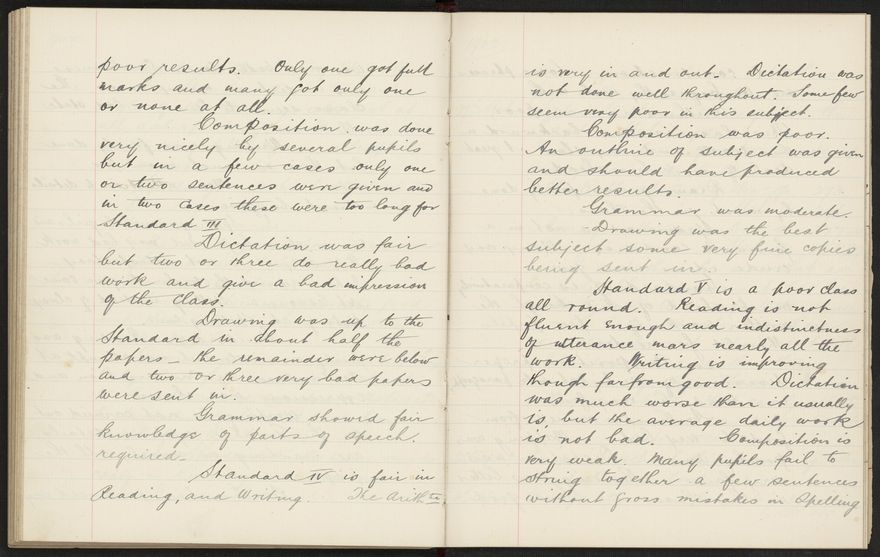 poor results. Only one got full
marks and many got only one
or none at all.
Composition was done
very nicely by several pupils
but in a few cases only one
or two sentences were given and
in two cases these were too long for
Standard III
Dictation was fair
but two or three do really bad
work and give a bad impression
of the class.
Drawing was up to the
Standard in about half the
papers - the remainder were below
and two or three very bad papers
were sent in.
Grammar showed fair
knowledge of parts of speech
required -
Standard IV is fair in
Reading, and Writing. The Arithtic
is very in and out. Dictation was
not done well throughout. Some few
seem very poor in this subject.
Composition was poor.
An outline of subject was given
and should have produced
better results.
Grammar was moderate.
Drawing was the best
subject some very fine copies
being sent in.
Standard V is a poor class
all round. Reading is not
fluent enough and indistinctness
of utterance mars nearly all the
work. Writing is improving
though far from good. Dictation
was much worse than it usually
is, but the average daily work
is not bad. Composition is
very weak. Many pupils fail to
string together a few sentences
without gross mistakes in Spelling